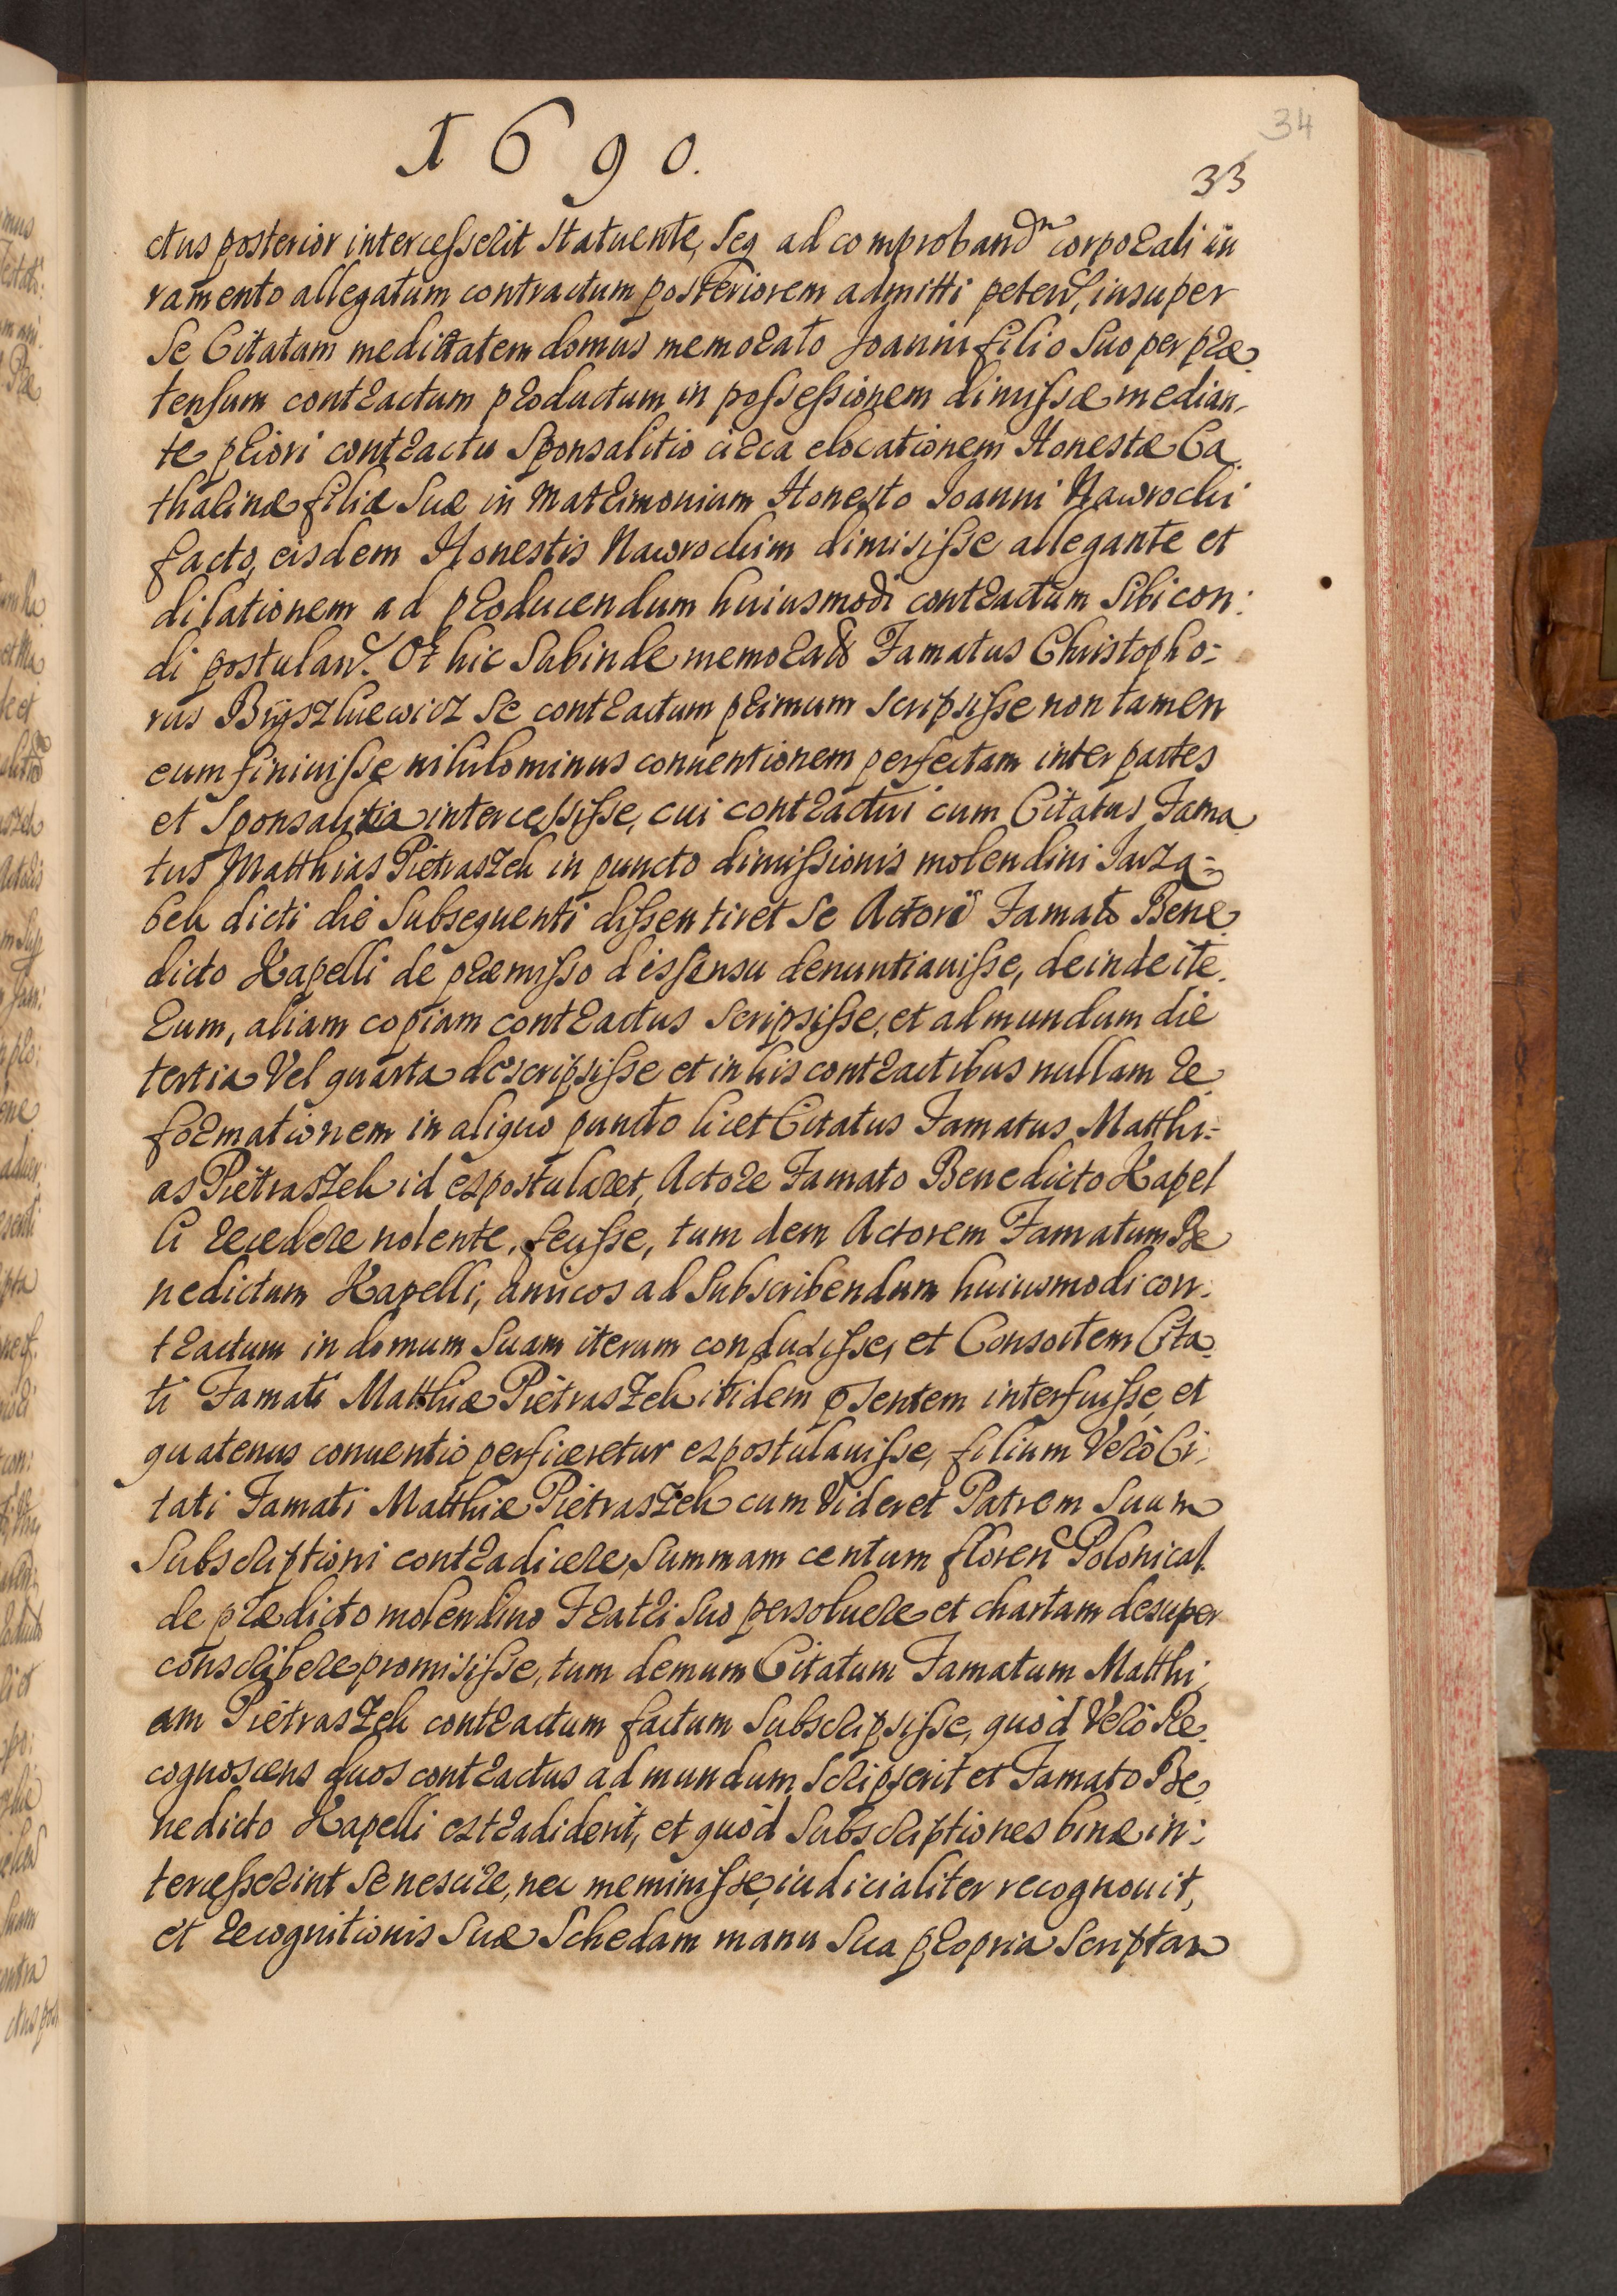 34
1690.
33
ctus posterior intercesserit statuente, seq ad comproband corporali iu
ramento allegatum contractum posteriorem admitti peten, insuper
Se Citatum medietatem domus memorato Joanni filio Suo per præ
tensum contractum productum in possessionem dimissæ median,
te priori contractu Sponsalitio circa elocationem Honestæ Ca
thalinæ filiæ Suæ in Matrimonium Honesto Joanni Nawrocki
facto, eisdem Honestis Nawrockim dimisisse allegante et
dilationem ad producendum huiusmodi contractum Sibi con:
di postulan. Et hic Subinde memoratus Famatus Christopho=
rus Se contractum primum scripsisse non tamen
eum finiuisse nihilominus conuentionem perfectam inter partes
et Sponsalitia intercessisse, cui contractui cum Citatus Fama
tus Matthias Pietraszek in puncto dimissionis molendini Jarza=
bek dicti die Subsequenti dissentiret Se Actori Famato Bene
dicto Kapelli de præmisso dissensu denuntiauisse, deinde ite
rum, aliam copiam contractus scripsisse, et ad mundum die
tertia Vel quarta descripsisse et in his contractibus nullam re
formationem in aliquo puncto licet Citatus Famatus Matthi=
as Pietraszek id expostularet, Actore Famato Benedicto Kapel
li recedere nolente, fecisse, tum dem Actorem Famatum Be
nedictum Kapelli, amicos ad Subscribendum huiusmodi con:
tractum in domum Suam iterum conduxisse, et Consortem Cita
ti Famati Matthiæ Pietraszek itidem psentem interfuisse, et
quatenus conuentio perficeretur expostulauisse, filium Verò Ci:
tati Famati Matthiæ Pietraszek cum Videret Patrem Suum
Subscriptioni contradicere, Summam centum floren Polonical
de prædicto molendino Fratri Suo persoluere et chartam desuper
conscribere promisisse, tum demum Citatum Famatum Matthi,
am Pietraszek contractum factum Subscripsisse, quòd Verò Re
cognoscens duos contractus ad mundum Scripserit et Famato Be
nedicto Kapelli extradiderit, et quòd Subscriptiones binæ in:
tercesserint Se nescire, nec meminisse, iudicialiter recognouit,
et recognitionis Suæ Schedam manu Sua propria Scriptam